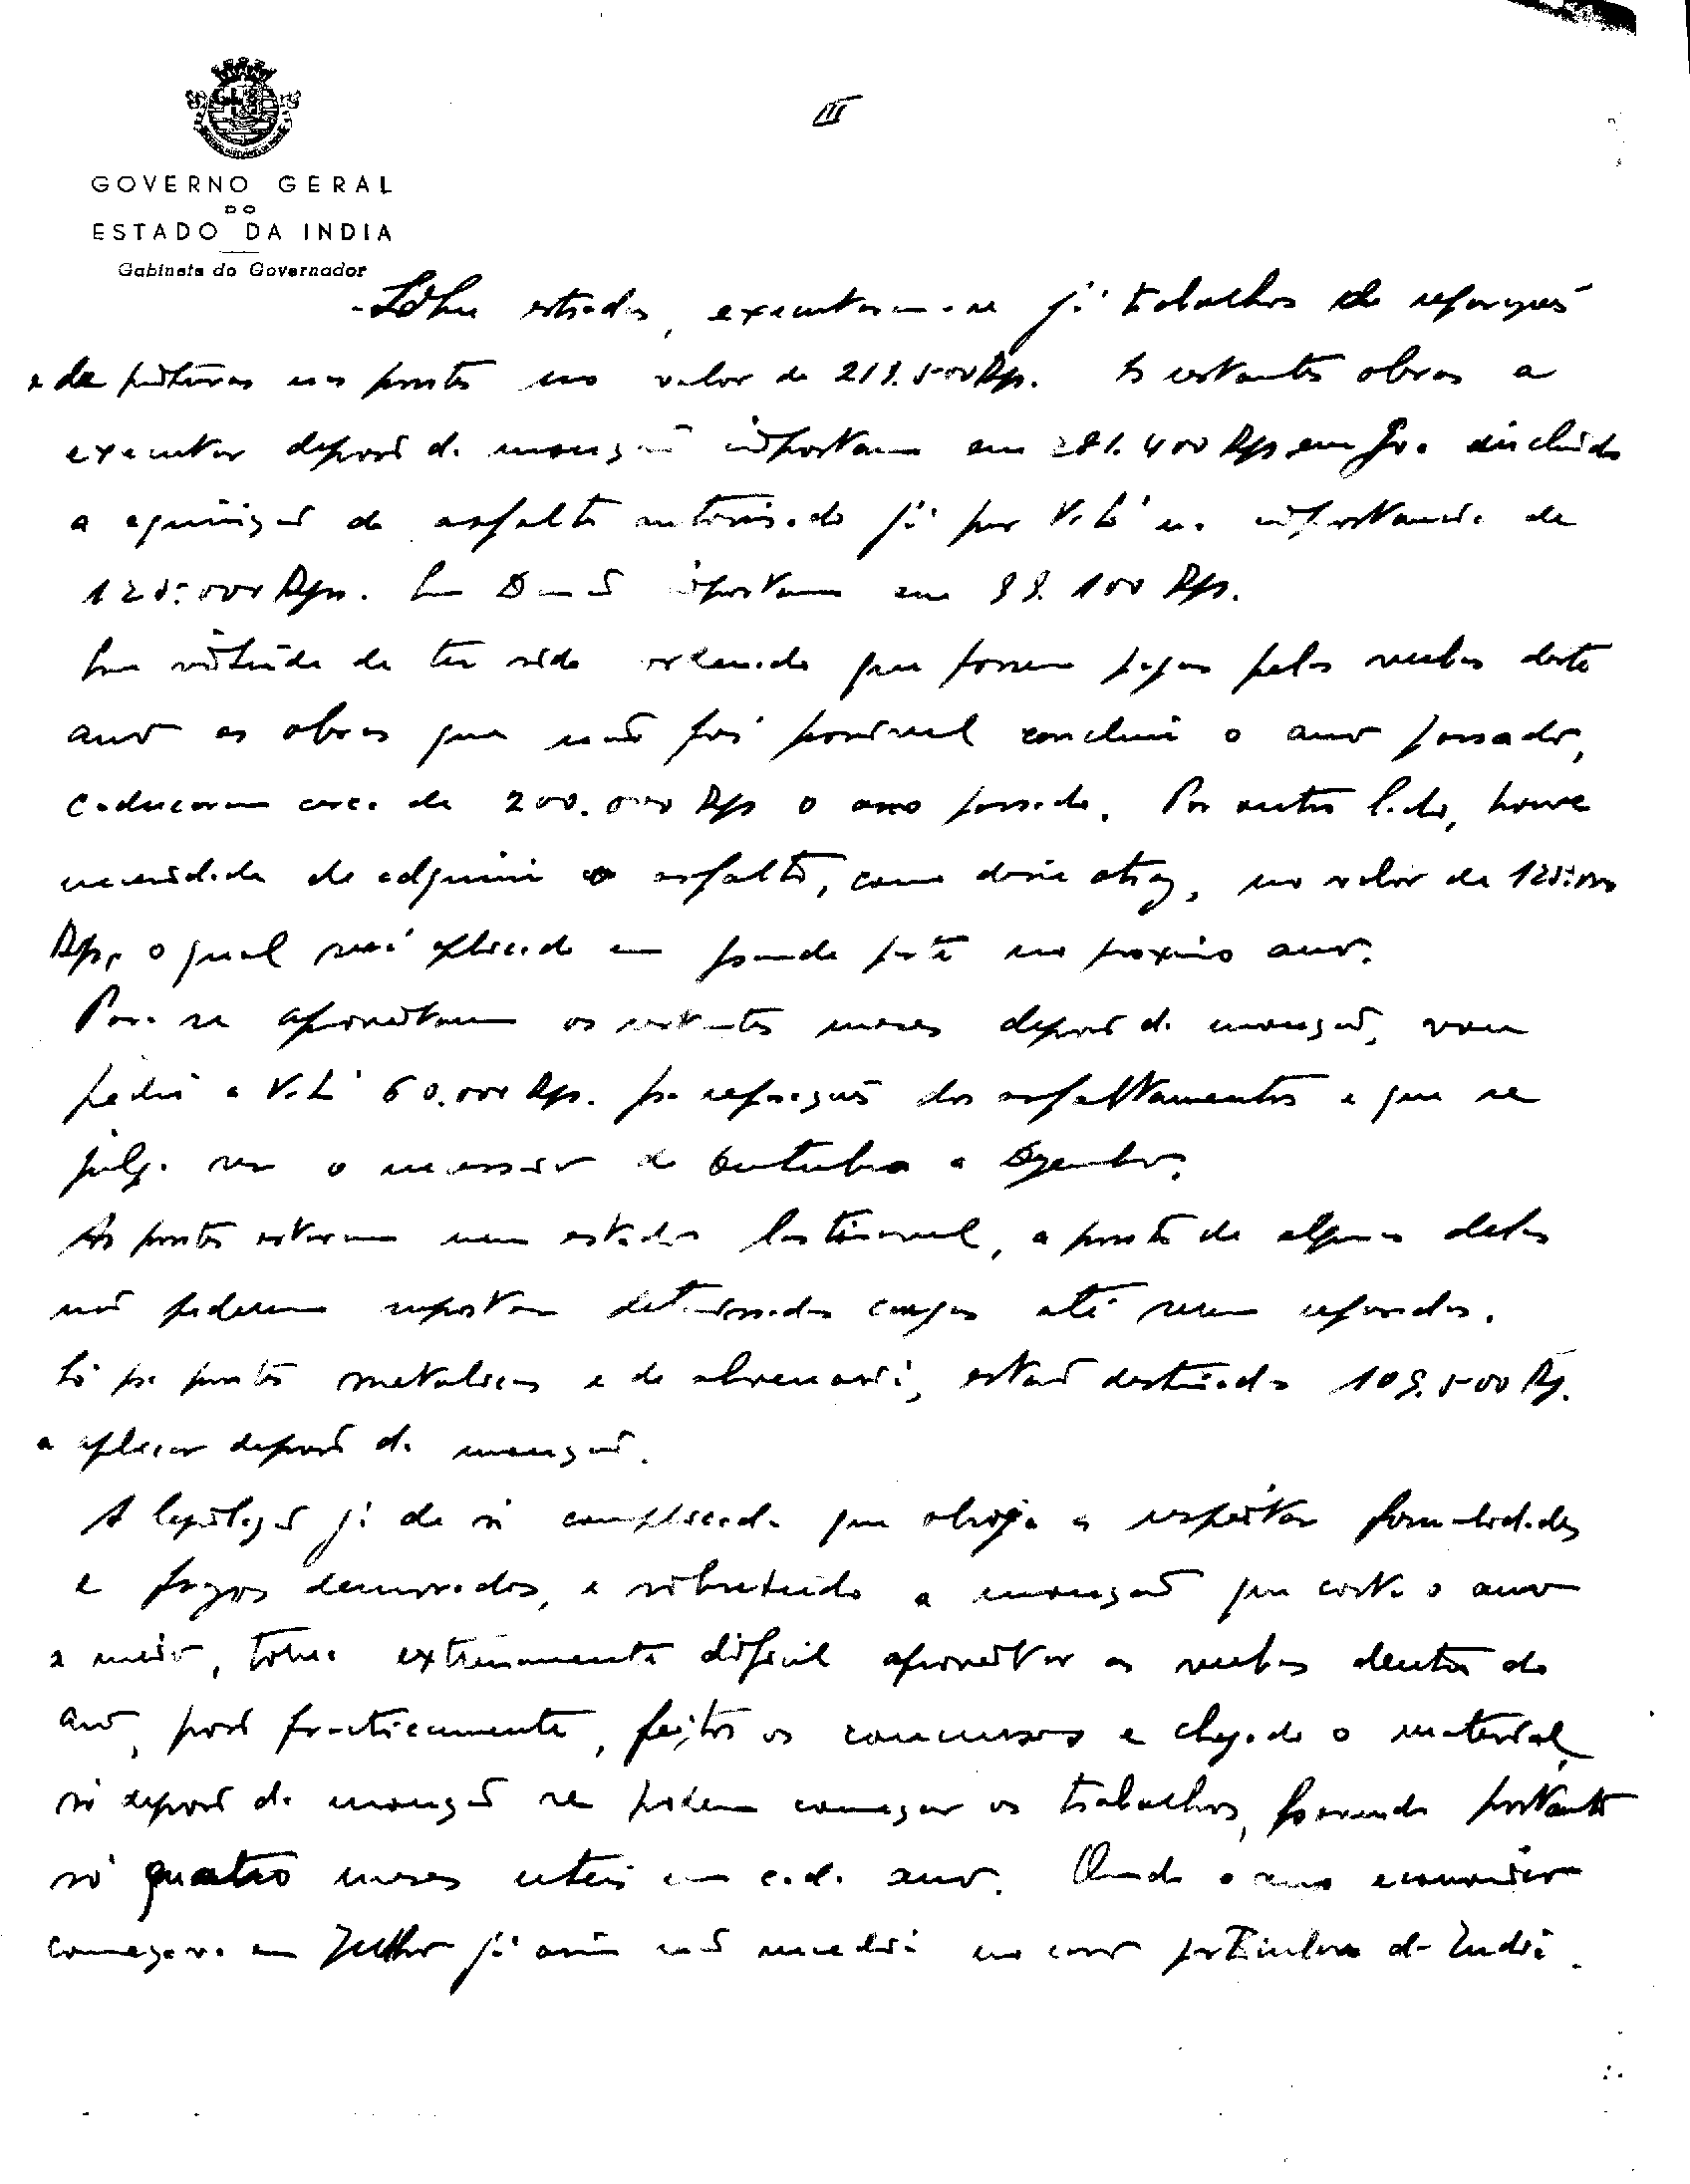 III
GOVERNO GERAL
DO
ESTADO DA INDIA
Gabinete do Governador
Sôbre estradas, executaram-se já trabalhos de reparação
e de pinturas nas pontes no valor de 218.500 Rps. As restantes obras a
executar depois da monção importam em 281.400 Rps em Goa incluindo
a aquisição de asfalto autorisado já por V. Exª na importancia de
125:000 Rps. Em Damão importam em 99.100 Rps.
Em virtude de ter sido ordenado que fossem pagas pelas verbas deste
ano as obras que não foi possivel concluir o ano passado,
caducaram cerca de 200.000 Rps o ano passado. Por outro lado, houve
necessidade de adquirir o asfalto, como disse atraz, no valor de 125:000
Rps, o qual será aplicado em grande parte no proximo ano.
Para se aproveitarem os restantes meses depois da monção, vou
pedir a V. Exª 60.000 Rps. para reparação dos asfaltamentos e que se
julga ser o necessario de Outubro a Dezembro.
As pontes estavam num estado lastimavel, a ponto de algumas delas
não poderem suportar determinadas cargas até serem reparadas.
Só para pontes metalicas e de alvenaria, estão destinadas 109.500 Rp.
a aplicar depois da monção.
A legislação já de si complicada que obriga a respeitar formalidades
e prazos demorados, e sobretudo a monção que corta o ano
a meio, torna extremamente dificil aproveitar as verbas dentro do
ano, pois praticamente, feitos os concursos e chegado o material,
só depois da monção se podem começar os trabalhos, ficando portanto
só quatro meses uteis em cada ano. Quando o ano economico
começava em Julho já assim não sucedia no caso particular da India.